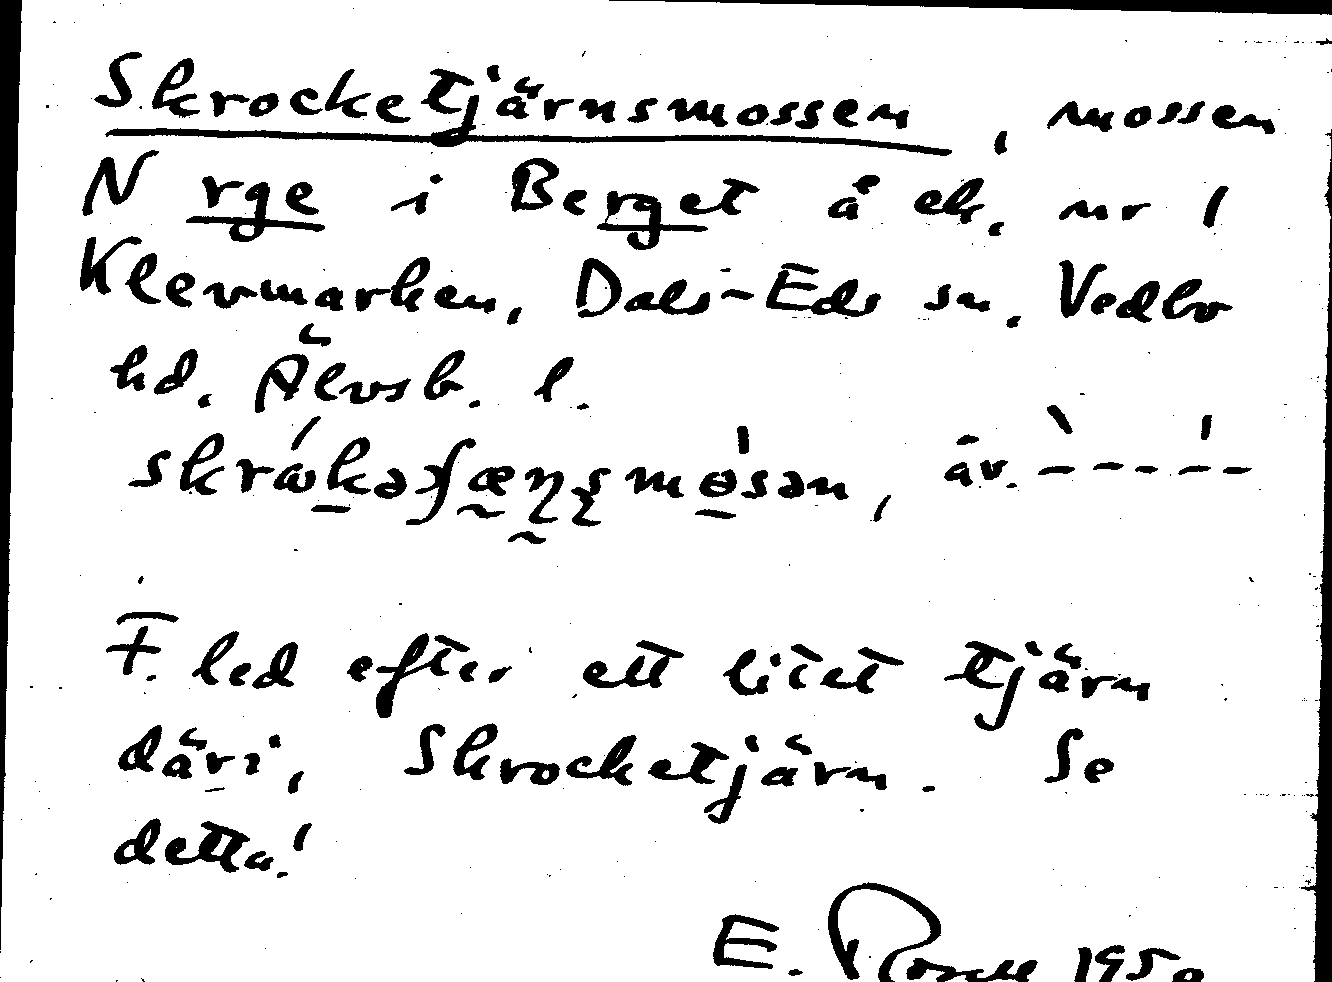 Skrocketjärnsmossen, mossen
N rge i Berget å ek. nr 1
Klevmarken, Dals-Eds sn. Vedbo
hd. Älvsb. l.
av. - - - - -
F. led efter ett litet tjärn
däri, Skrocketjärn. Se
detta!
E. 1950